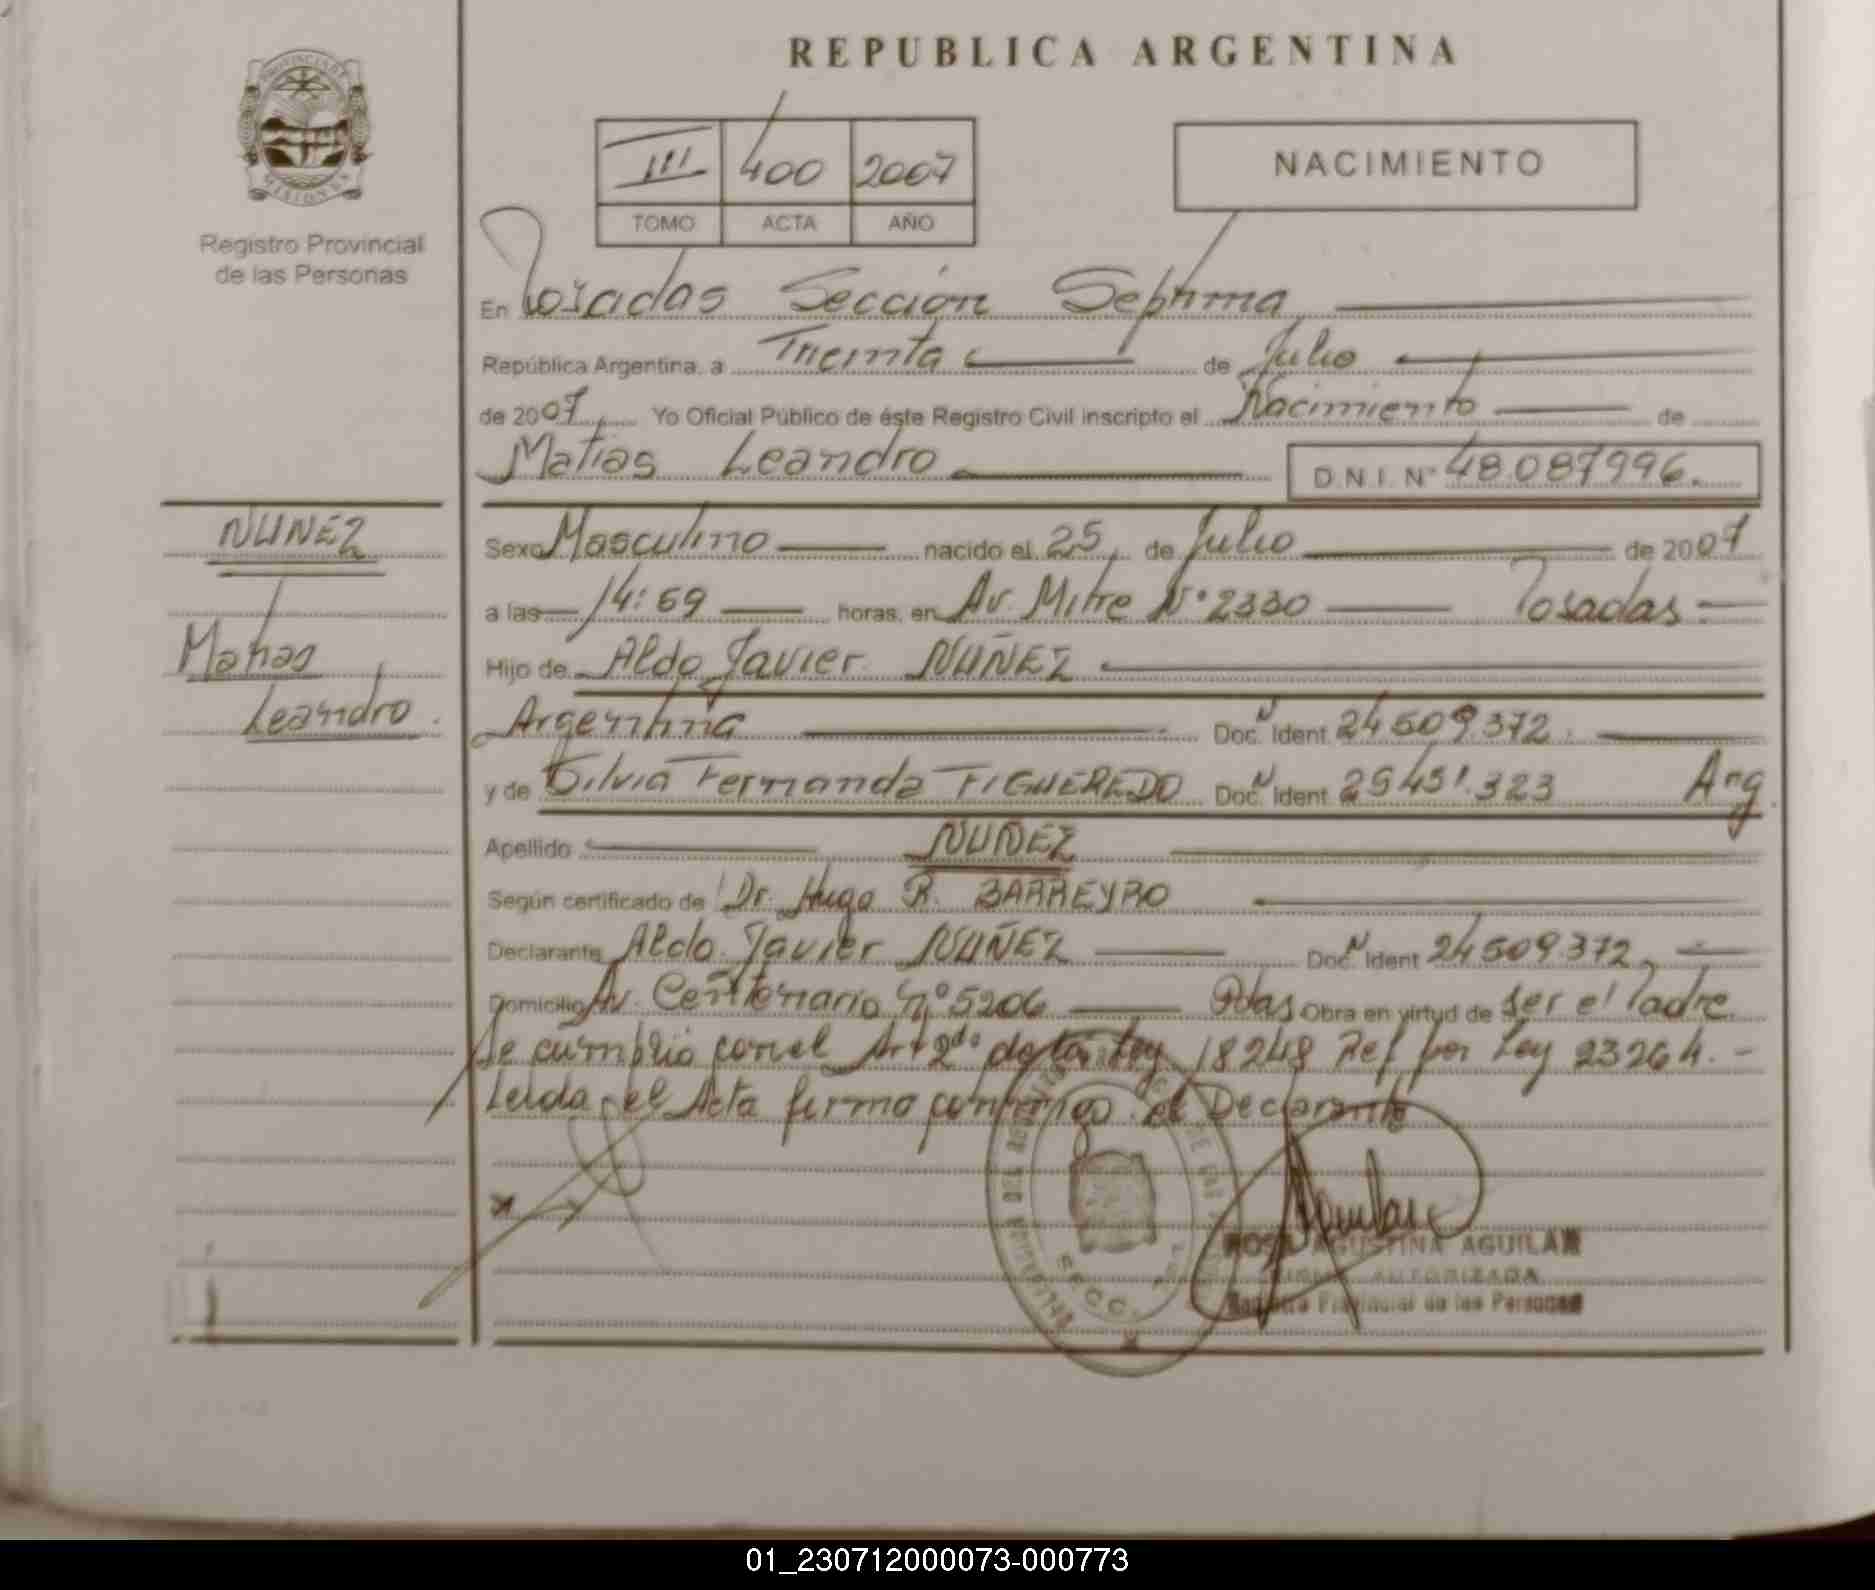 REPUBLICA ARGENTINA
PROVINCIA DE
MISIONES
Registro Provincial
de las Personas
III 400 2007
TOMO ACTA AÑO
NACIMIENTO
En Posadas Sección Septima
República Argentina, a Treinta de Julio
de 2007, Yo Oficial Público de éste Registro Civil inscripto el Nacimiento de
Matias Leandro D.N.I. N° 48.087996.
NUÑEZ
Matias
Leandro.
Sexo Masculino nacido el 25, de Julio de 2007
a las 14:59 horas, en Av. Mitre N° 2330 Posadas
Hijo de Aldo Javier NUÑEZ
Argentina Doc. Ident. 24509.372.
y de Silvia Fernanda FIGUEREDO Doc. Ident. 25451.323 Arg
Apellido NUÑEZ
Según certificado de Dr. Hugo R. BARREYRO
Declarante Aldo Javier NUÑEZ Doc. Ident 24509.372,
Domicilio Av. Centenario n° 5206 Pdas Obra en virtud de ser el Padre.
Se cumplio con el Art 2do de la Ley 18248 Ref por Ley 23264. -
Leida el Acta firma conmigo el Declarante
ROSA AGUSTINA AGUILAR
AUTORIZADA
Registro Provincial de las Personas
01_230712000073-000773